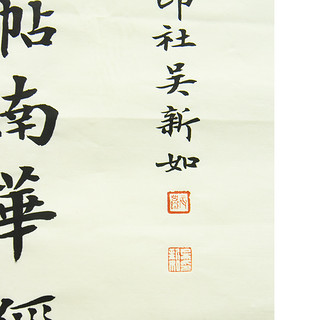 印社吴新如
帖南華經